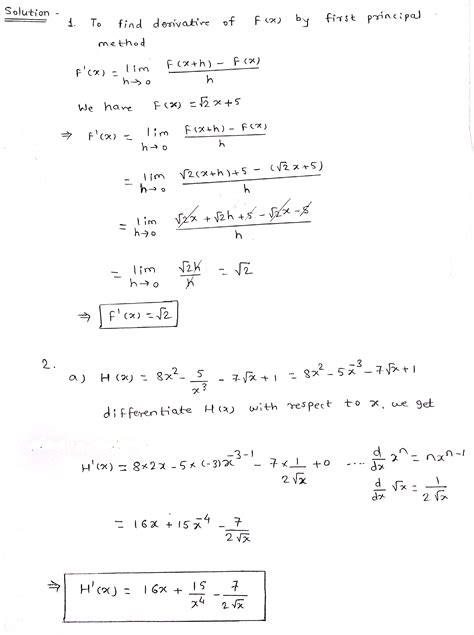 Solution -
1. To find derivative of F(x) by first principal
method
F'(x) = lim h→0 F(x+h) - F(x) / h
We have F(x) = √2 x + 5
⇒ F'(x) = lim h→0 F(x+h) - F(x) / h
= lim h→0 √2(x+h)+5 - (√2x+5) / h
= lim h→0 √2x + √2h + 5 - √2x - 5 / h
= lim h→0 √2h / h = √2
⇒ F'(x) = √2
2.
a) H(x) = 8x² - 5/x³ - 7√x + 1 = 8x² - 5x⁻³ - 7√x + 1
differentiate H(x) with respect to x, we get
H'(x) = 8×2x - 5×(-3)x⁻³⁻¹ - 7×1/2√x + 0 .... d/dx xⁿ = nxⁿ⁻¹
d/dx √x = 1/2√x
= 16x + 15x⁻⁴ - 7/2√x
⇒ H'(x) = 16x + 15/x⁴ - 7/2√x